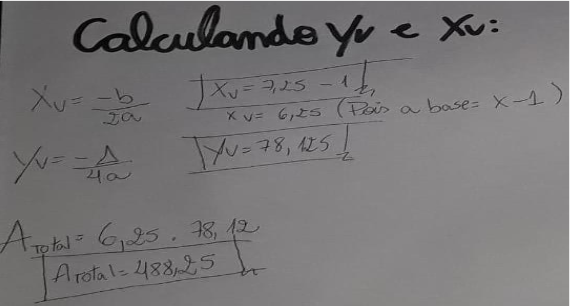 Calculando Yv e Xv:
Xv = -b/2a
Xv = 7,25 - 1
xv = 6,25 (Pois a base = x-1)
Yv = -Δ/4a
Yv = 78,125
ATotal = 6,25 . 78,12
ATotal = 488,25